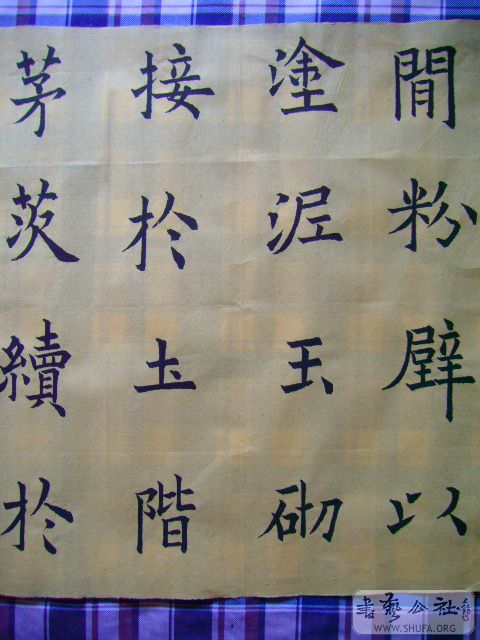 閒粉壁以
塗泥玉砌
接於土階
茅茨續於
書藝公社
WWW.SHUFA.ORG